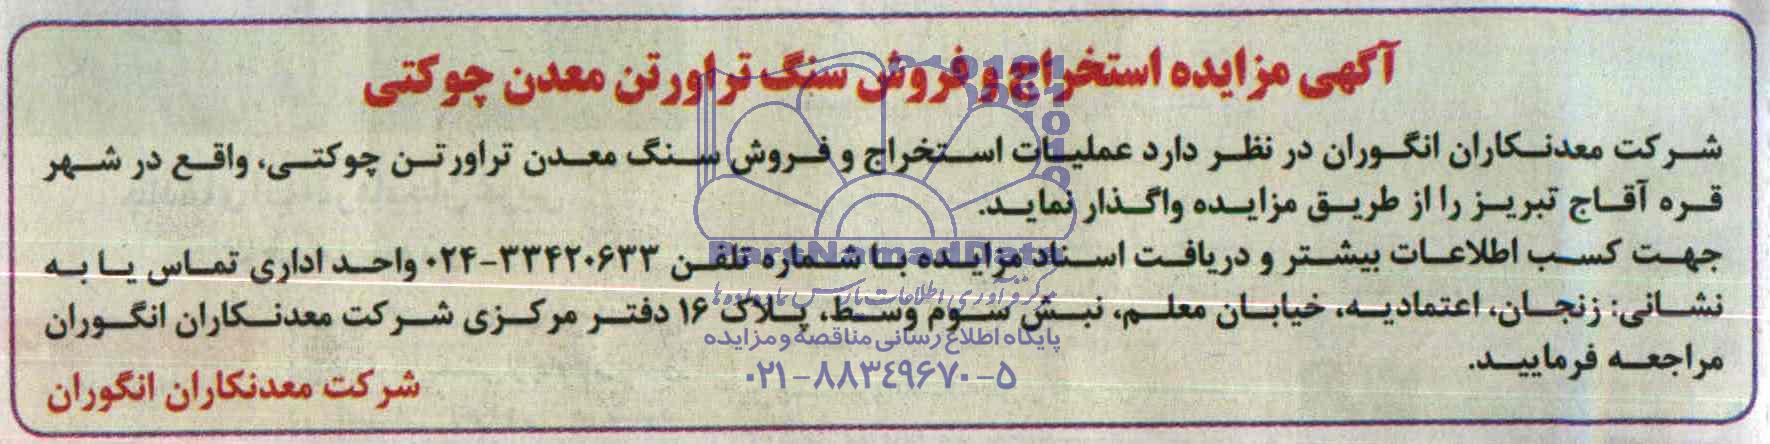 آگهی مزایده استخراج و فروش سنگ تراورتن معدن چوکتی
شرکت معدنکاران انگوران در نظر دارد عملیات استخراج و فروش سنگ معدن تراورتن چوکتی، واقع در شهر
قره آقاج تبریز را از طریق مزایده واگذار نماید.
جهت کسب اطلاعات بیشتر و دریافت اسناد مزایده با شماره تلفن ۳۳۴۲۰۶۳۳-۰۲۴ واحد اداری تماس یا به
نشانی: زنجان، اعتمادیه، خیابان معلم، نبش سوم وسط، پلاک ۱۶ دفتر مرکزی شرکت معدنکاران انگوران
مراجعه فرمایید.
شرکت معدنکاران انگوران
ParsNamadData
مرکز فرآوری اطلاعات پارس نماد داده ها
پایگاه اطلاع رسانی مناقصه و مزایده
۰۲۱-۸۸۳۴۹۶۷۰-۵